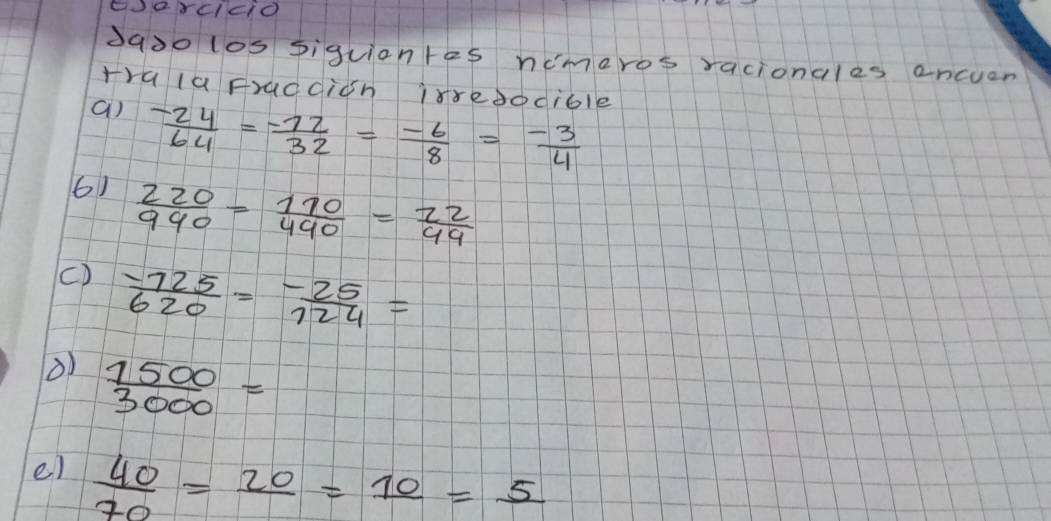 Ejercicio
Dado los siguientes números racionales encuen
tra la Fracción irreducible
a) -24/64 = -12/32 = -6/8 = -3/4
b) 220/990 = 110/490 = 22/99
c) -125/620 = -25/124 =
d) 1500/3000 =
e) 40/70 = 20 = 10 = 5